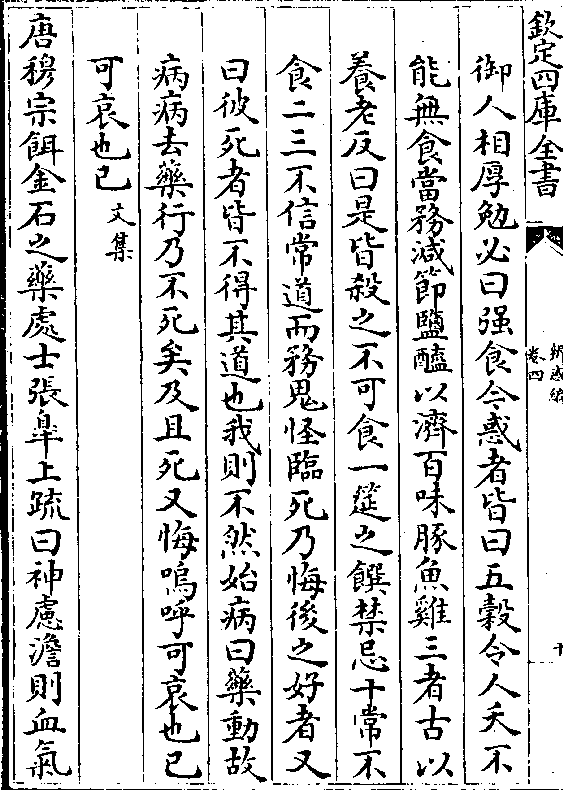 欽定四庫全書
辨惑編
卷四
十
御人相厚勉必曰强食今惑者皆曰五穀令人夭不
能無食當務減節鹽醯以濟百味豚魚雞三者古以
養老反曰是皆殺之不可食一筵之饌禁忌十常不
食二三不信常道而務鬼怪臨死乃悔後之好者又
曰彼死者皆不得其道也我則不然始病曰藥動故
病病去藥行乃不死矣及且死又悔嗚呼可哀也已
可哀也已文集
唐穆宗餌金石之藥處士張臯上疏曰神慮澹則血氣